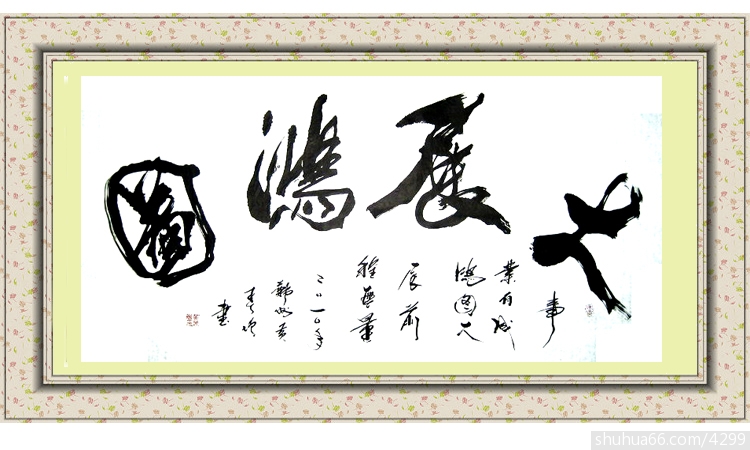 大展鴻圖
事
業有成
鴻圖大
展前
程無量
二〇一〇年
書
shuhua66.com/4299